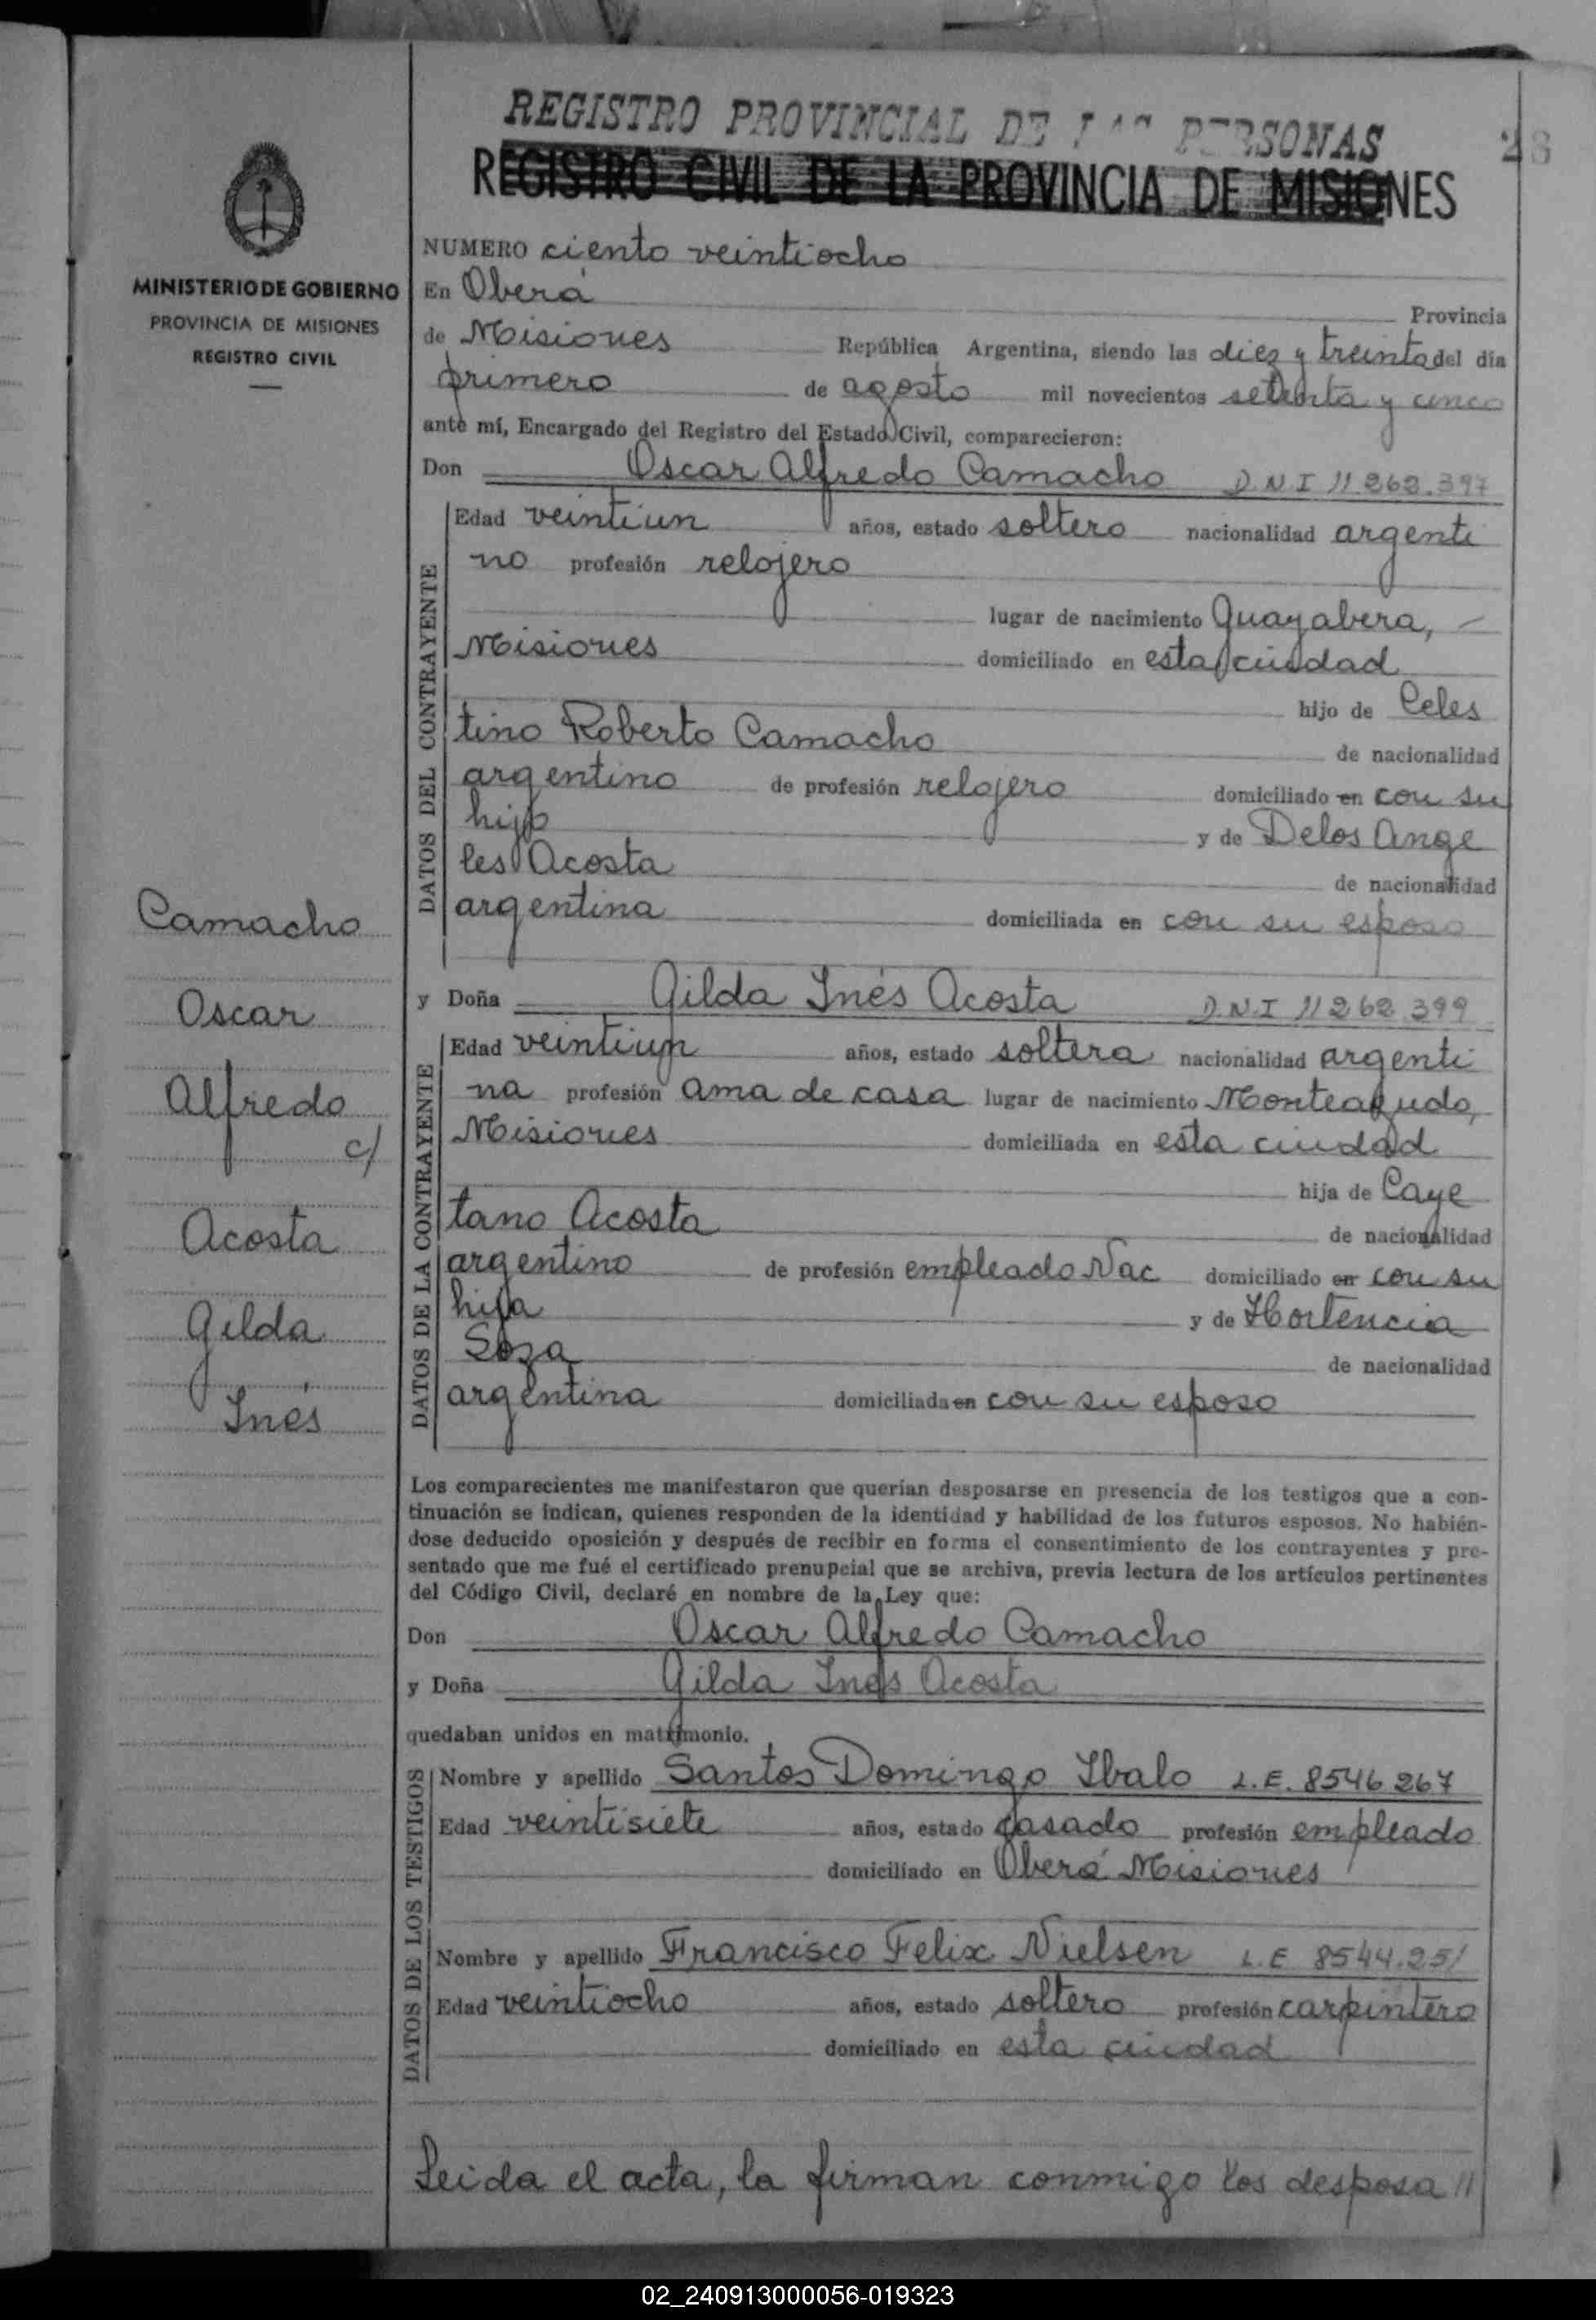 REGISTRO PROVINCIAL DE LAS PERSONAS
28
REGISTRO CIVIL DE LA PROVINCIA DE MISIONES
MINISTERIO DE GOBIERNO
PROVINCIA DE MISIONES
REGISTRO CIVIL
NUMERO ciento veintiocho
En Oberá Provincia
de Misiones República Argentina, siendo las diez y treinta del día
primero de agosto mil novecientos setenta y cinco
ante mí, Encargado del Registro del Estado Civil, comparecieron:
Don Oscar Alfredo Camacho D.N.I 11.262.397
DATOS DEL CONTRAYENTE
Edad veintiun años, estado soltero nacionalidad argenti
no profesión relojero
lugar de nacimiento Guayabera,
Misiones domiciliado en esta ciudad
hijo de Celes
tino Roberto Camacho de nacionalidad
argentino de profesión relojero domiciliado en con su
hijo y de Delos Ange
les Acosta de nacionalidad
argentina domiciliada en con su esposo
y Doña Gilda Inés Acosta D.N.I 11262.399
DATOS DE LA CONTRAYENTE
Edad veintiun años, estado soltera nacionalidad argenti
na profesión ama de casa lugar de nacimiento Monteagudo,
Misiones domiciliada en esta ciudad
hija de Caye
tano Acosta de nacionalidad
argentino de profesión empleado Nac domiciliado en con su
hija y de Hortencia
Soza de nacionalidad
argentina domiciliada en con su esposo
Camacho
Oscar
Alfredo
c/
Acosta
Gilda
Inés
Los comparecientes me manifestaron que querían desposarse en presencia de los testigos que a con-
tinuación se indican, quienes responden de la identidad y habilidad de los futuros esposos. No habién-
dose deducido oposición y después de recibir en forma el consentimiento de los contrayentes y pre-
sentado que me fué el certificado prenupcial que se archiva, previa lectura de los artículos pertinentes
del Código Civil, declaré en nombre de la Ley que:
Don Oscar Alfredo Camacho
y Doña Gilda Inés Acosta
quedaban unidos en matrimonio.
DATOS DE LOS TESTIGOS
Nombre y apellido Santos Domingo Ibalo L.E. 8546267
Edad veintisiete años, estado casado profesión empleado
domiciliado en Oberá Misiones
Nombre y apellido Francisco Felix Nielsen L.E 8544.251
Edad veintiocho años, estado soltero profesión carpintero
domiciliado en esta ciudad
Leida el acta, la firman conmigo los desposa //
02_240913000056-019323